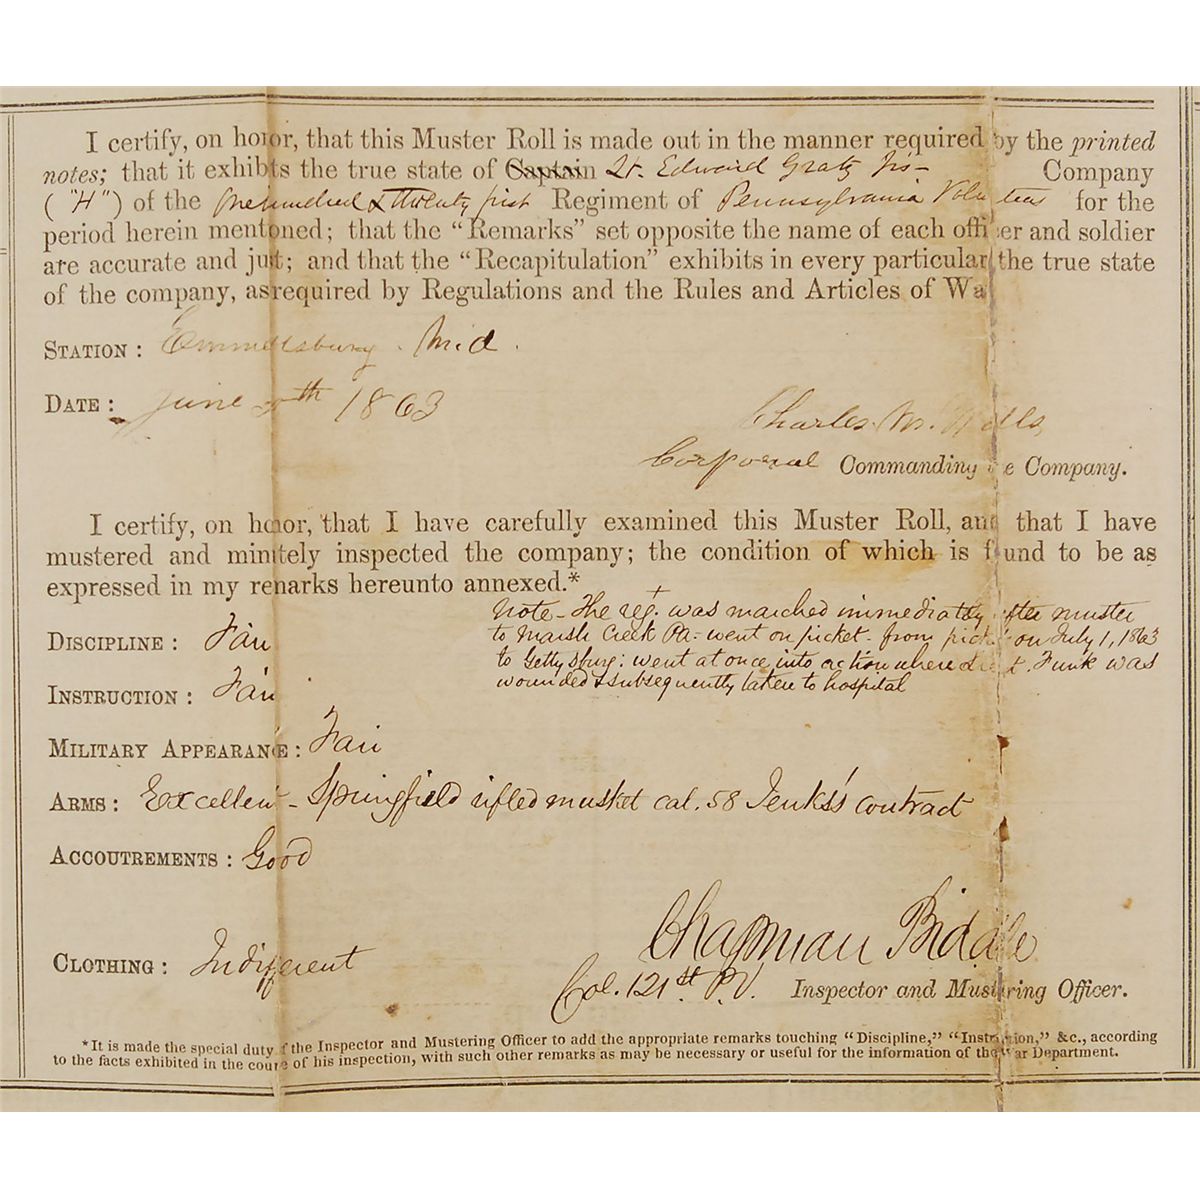 I certify, on honor, that this Muster Roll is made out in the manner required by the printed
notes; that it exhibits the true state of Captain Lt. Edward Gratz Company
("H") of the One hundred & twenty first Regiment of Pennsylvania Volunteers for the
period herein mentioned; that the "Remarks" set opposite the name of each officer and soldier
are accurate and just; and that the "Recapitulation" exhibits in every particular the true state
of the company, as required by Regulations and the Rules and Articles of Wa
STATION: Emmettsburg. M.d.
DATE: June th 1863
Charles M.
Corporal Commanding e Company.
I certify, on honor, that I have carefully examined this Muster Roll, and that I have
mustered and minutely inspected the company; the condition of which is found to be as
expressed in my remarks hereunto annexed.*
DISCIPLINE: Fair
Note - The reg. was marched immediately after muster
to Marsh Creek Pa- went on picket. from picket on July 1, 1863
to Gettysburg: went at once into action where . Funk was
wounded & subsequently taken to hospital
INSTRUCTION: Fair
MILITARY APPEARANCE: Fair
ARMS: Excellent - Springfield rifled musket cal. 58 Jenks's contract
ACCOUTREMENTS: Good
Chapman Biddle
CLOTHING: Indifferent
Col. 121st. P.V. Inspector and Mustering Officer.
*It is made the special duty of the Inspector and Mustering Officer to add the appropriate remarks touching "Discipline," "Instruction," &c., according
to the facts exhibited in the course of his inspection, with such other remarks as may be necessary or useful for the information of the War Department.